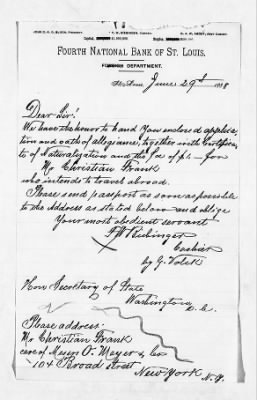 FOURTH NATIONAL BANK OF ST. LOUIS.
FOREIGN DEPARTMENT.
St. Louis, June 29th 1888
Dear Sir!
We have the honor to hand you enclosed applica-
tion and oath of allegiance, together with Certifica-
te of Naturalization and the fee of $1.- for
Mr. Christian Frank
who intends to travel abroad.
Please send passport as soon as possible
to the Address as stated below and oblige
Your most obedient servant
Cashier
by G. Volck
Hon. Secretary of State
Washington
D.C.
Please address:
Mr Christian Frank
care of Messrs O. Meyer & Co
104 Broad street
New York N.Y.